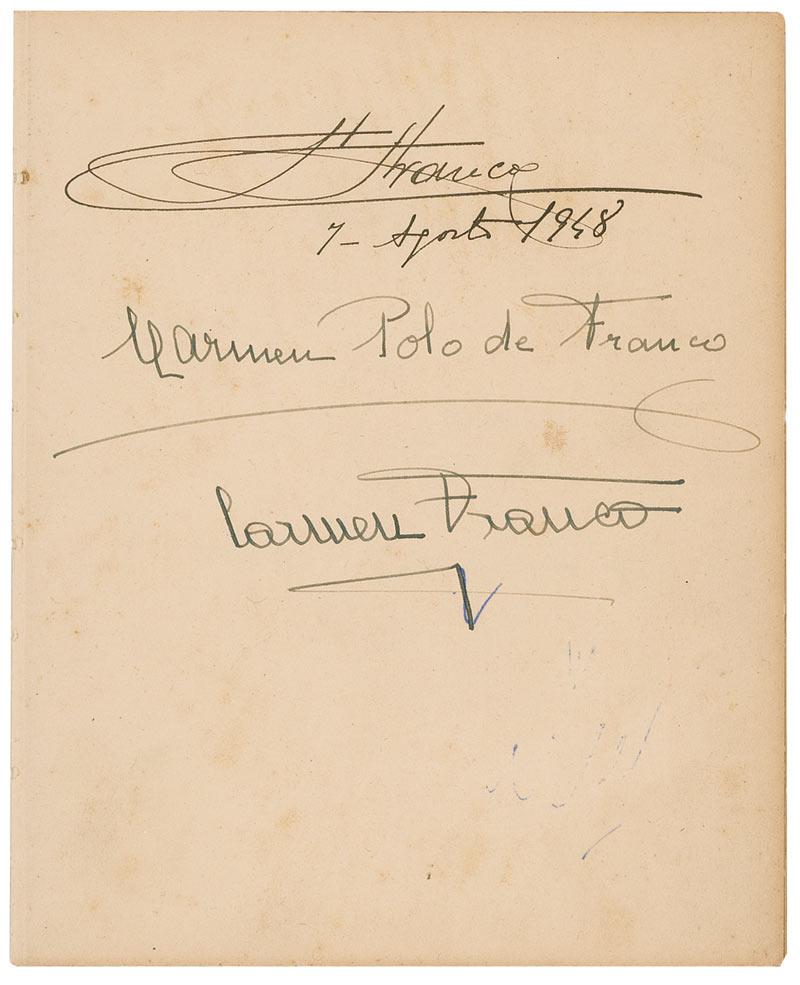 F Franco
7- Agosto 1948
Carmen Polo de Franco
Carmen Franco